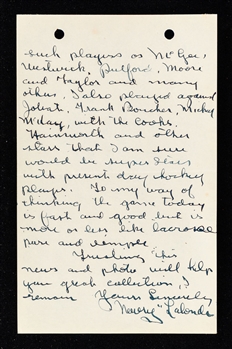 such players as McGee,
Westwick, Pulford, Moore
and Taylor and many
others. I also played against
Joliat, Frank Boucher, Mickey
McKay, with the Cooks,
Hainsworth and other
stars that I am sure
would be super stars
with present day hockey
player. To my way of
thinking the game today
is fast and good but is
more or less like lacrosse
pure and simple.
Trusting this
news and photo will help
your great collection, I
remain Yours Sincerely
"Newsy" Lalonde